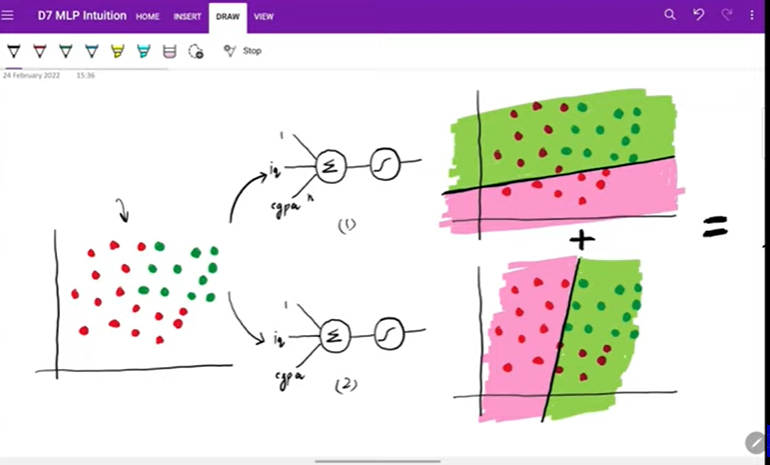 D7 MLP Intuition HOME INSERT DRAW VIEW
Stop
24 February 2022 15:36
1
iq
cgpa
Σ
(1)
+
=
1
iq
cgpa
Σ
(2)